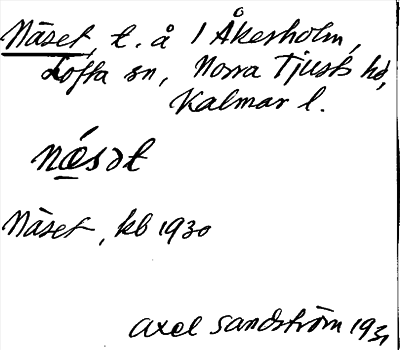 Näset, t. å 1 Åkersholm,
Lofta sn, Norra Tjusts hd,
Kalmar l.
nǽ̱sət
Näset, kb 1930
Axel Sandström 1931